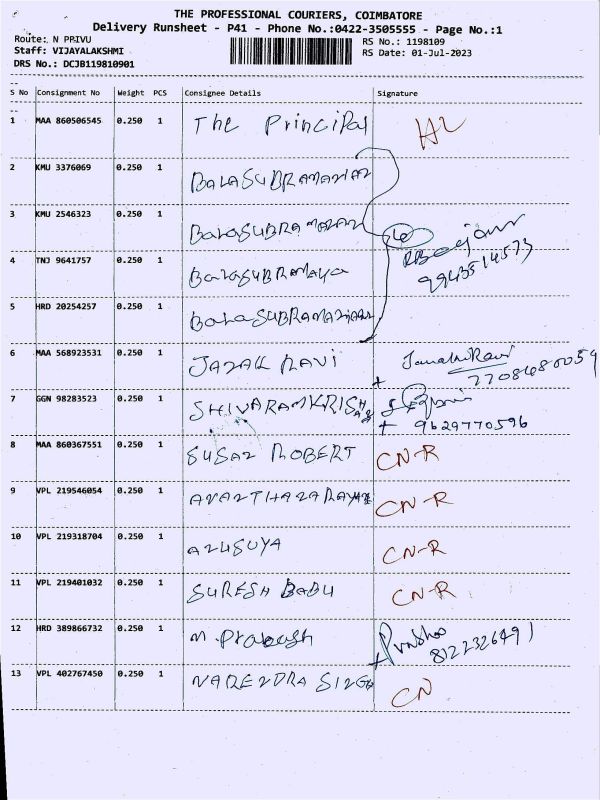 THE PROFESSIONAL COURIERS, COIMBATORE
Delivery Runsheet - P41 - Phone No.:0422-3505555 - Page No.:1
Route: N PRIVU
RS No.: 1198109
Staff: VIJAYALAKSHMI
RS Date: 01-Jul-2023
DRS No.: DCJB119810901
S No Consignment No Weight PCS Consignee Details Signature
1 MAA 860506545 0.250 1 The Principal
2 KMU 3376069 0.250 1 BALASUBRAMANIAN
3 KMU 2546323 0.250 1 BALASUBRAMANIAN
4 TNJ 9641757 0.250 1 BALASUBRAMAYA
9943514573
5 HRD 20254257 0.250 1 BALASUBRAMANIAN
6 MAA 568923531 0.250 1 JANAK RAVI Janaki Ravi
7708480059
7 GGN 98283523 0.250 1 SHIVARAMKRISH
9629770596
8 MAA 860367551 0.250 1 SUSAN ROBERT CN-R
9 VPL 219546054 0.250 1 ANANTHANARAYAN CN-R
10 VPL 219318704 0.250 1 ANUSUYA CN-R
11 VPL 219401032 0.250 1 SURESH BABU CN-R
12 HRD 389866732 0.250 1 M. Prakash
13 VPL 402767450 0.250 1 NARENDRA SINGH CN